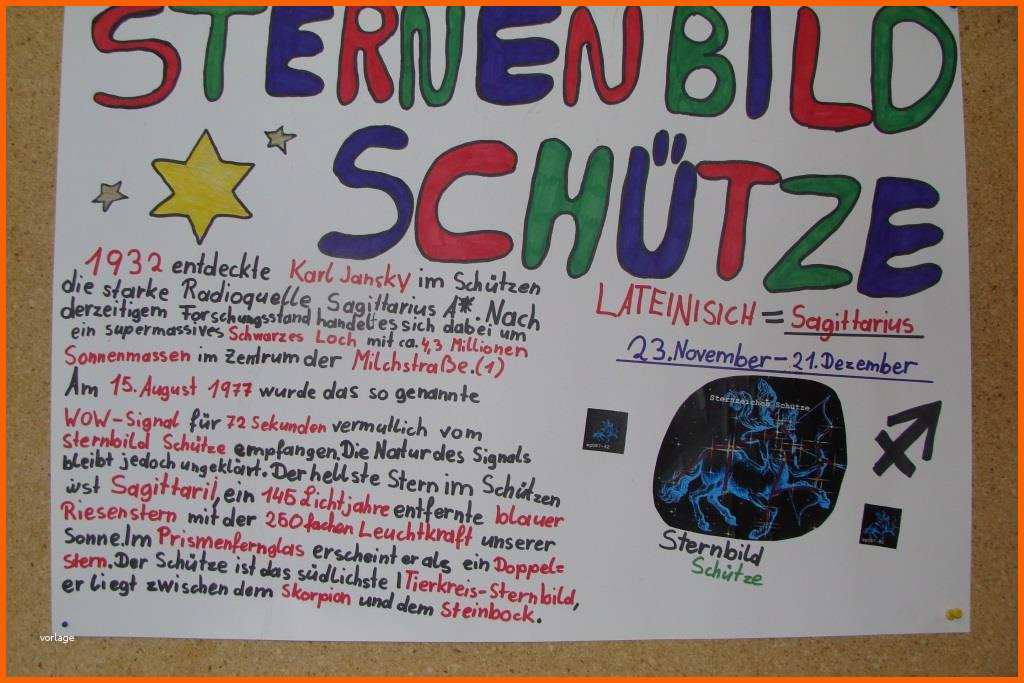 STERNENBILD
SCHÜTZE
1932 entdeckte Karl Jansky im Schützen
die starke Radioquelle Sagittarius A*. Nach
derzeitigem Forschungsstand handelt es sich dabei um
ein supermassives Schwarzes Loch mit ca. 4,3 Millionen
Sonnenmassen im Zentrum der Milchstraße.(1)
Am 15. August 1977 wurde das so genannte
WOW-Signal für 72 Sekunden vermutlich vom
Sternbild Schütze empfangen. Die Natur des Signals
bleibt jedoch ungeklärt. Der hellste Stern im Schützen
ist Sagittarii, ein 145 Lichtjahre entfernte blauer
Riesenstern mit der 250fachen Leuchtkraft unserer
Sonne. Im Prismenfernglas erscheint er als ein Doppel=
Stern. Der Schütze ist das südlichste Tierkreis-Sternbild,
er liegt zwischen dem Skorpion und dem Steinbock.
LATEINISICH = Sagittarius
23. November - 21. Dezember
Sternzeichen Schütze
Sternbild
Schütze
vorlage